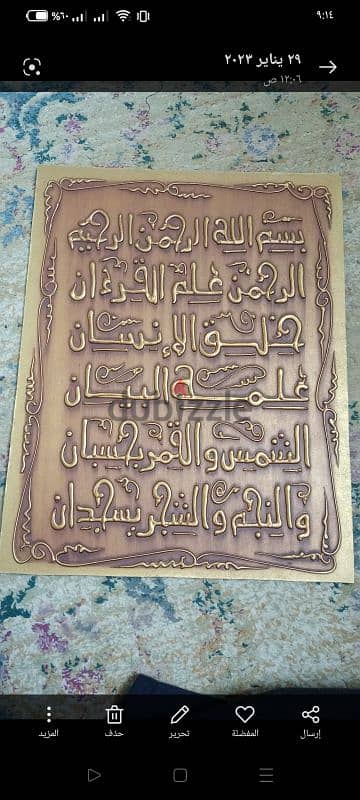 ٩:١٤
%٦٠
٢٩ يناير ٢٠٢٣
١٢:٠٦ ص
بسم الله الرحمن الرحيم
الرحمن علم القرءان
خلق الإنسان
علمه البيان
dubizzle
الشمس والقمر بحسبان
والنجم والشجر يسجدان
إرسال
المفضلة
تحرير
حذف
المزيد